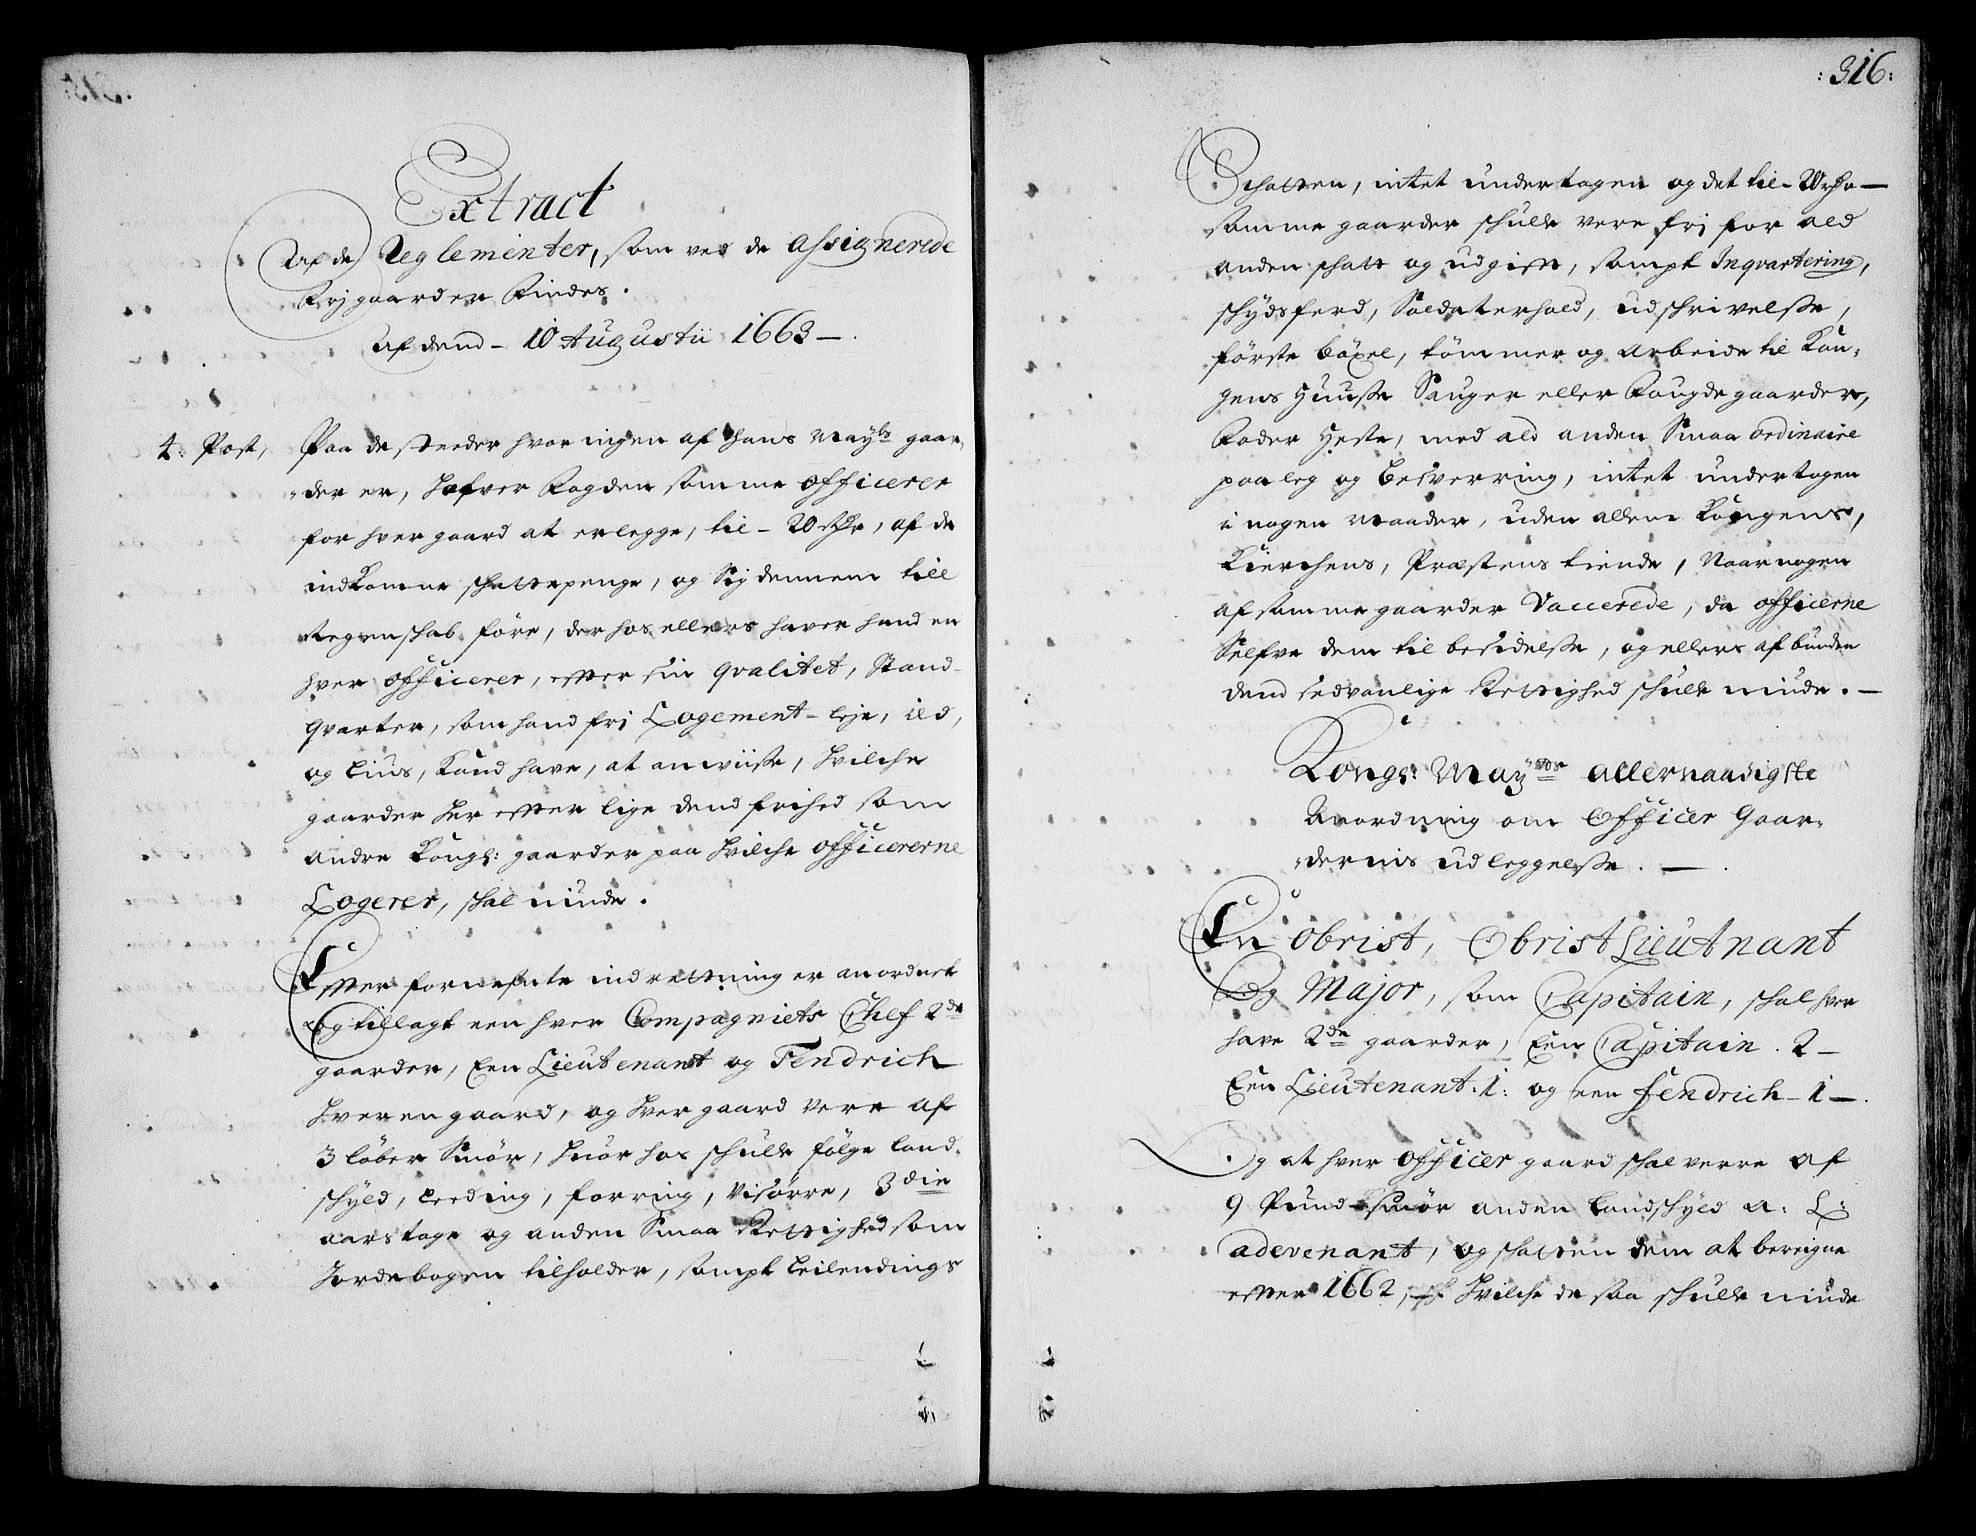 Extract
Af de Reglementer, som ved de assignerede
Frj gaarder findes.
Af dend - 10 Augustii 1663 -.
4. Post, Paa de steeder hvor ingen af hans Mayts gaar-
der er, hafver Fogden somme officerer
for hver gaard at erlegge, til - 20 rdr, af de
indkomne schattepenge, og Sig dennem till
Regenschab føre, der hos ellers haver hand en
hver officerer, efter sin qvalitet, Stand-
qvarter, som hand frj Logement - leje, ild,
og lius, kand have, at anviisse, hvilche
gaarder her efter lige dend frihed som
andre Kongs: gaarder paa hvilche officererne
Logerer, schal niude.
Efter fornefnte indretning er anordnet
og tillagt een hver Compagniets Chef 2de
gaarder, Een Lieutenant og Fendrich
hver en gaard, og hver gaard vere af
3 løber Smør, huor hos schulle følge land-
schyld, leeding, forring, visørre, 3die
aars tage og anden Smaa Rettighed som
Jordebogen tilholder, sampt leilendings
:316:
Schatten, intet undertagen og det til - 20 rdr -
somme gaarder schulle vere frj for ald
anden schatt og udgift, sampt Inqvartering,
schydsferd, Soldaterhold, udschrivelsse,
første bøxel, tømmer og arbeide til Kon-
gens Huusse Sauger eller Fougde gaarder,
Foder Heste, med ald anden Smaa ordinaire
paaleg og besverring, intet undertagen
i nogen maader, uden allene Kongens,
Kierchens, Præstens tiende, Naar nogen
af somme gaarder Vaccerede, da officerne
Selfve dem til besidelsse, og ellers af bunden
dend sedvanlige Rettighed schulle niude. -
Kongs: Mayts allernaadigste
Anordning om Officer Gaar-
dernis udleggelsse. -.
En Obrist, Obrist Lieutnant
Og Major, som Capitain, schal hver
have 2de gaarder, Een Capitain. 2 -
Een Lieutenant. 1: og een Fendrich - 1 -.
Og at hver officer gaard schal verre af
9 Pund smør anden landschyld a: L:
adevenant, og schatten dem at bereigne
efter 1662, hvilche de saa schulle niude